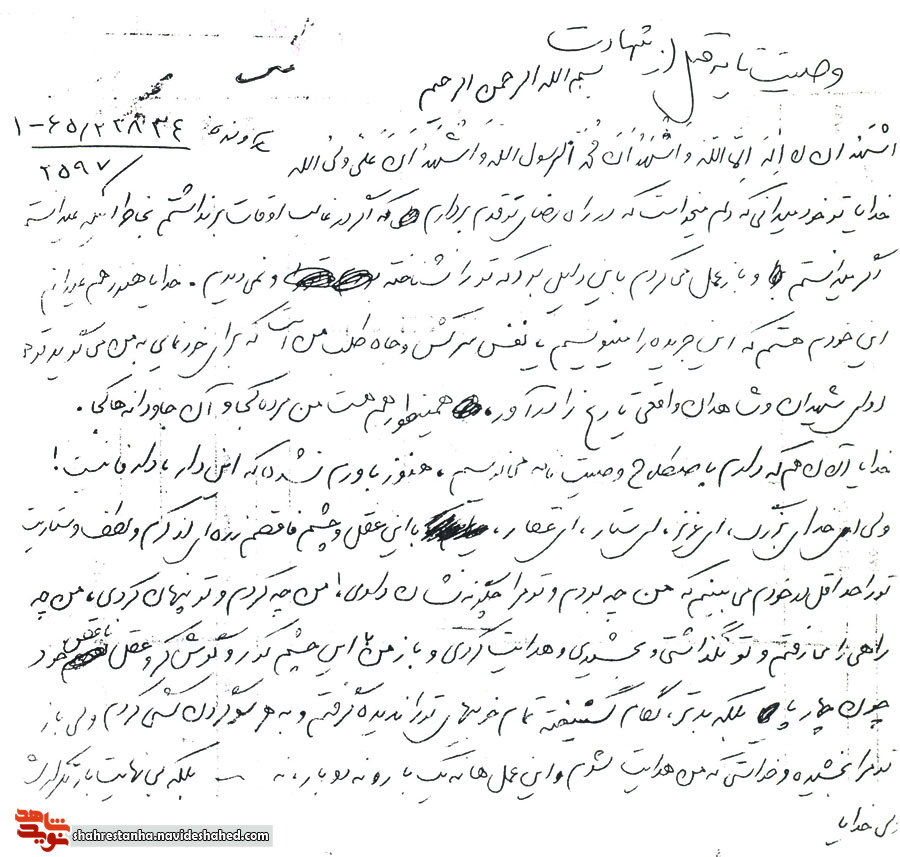 وصیت نامه قبل از شهادت
بسم الله الرحمن الرحیم
پرونده ۱-۶۵/۲۲۸۳۴
۲۵۹۷
اشهد ان لا اله الا الله و اشهد ان محمد الرسول الله و اشهد ان علی ولی الله
خدایا تو خود میدانی که دلم میخواست که در راه رضای تو قدم بردارم که اگر در غالب اوقات برنداشتم بخاطر اینکه نمیدانستم
اگر میدانستم و باز عمل می کردم باین دلیل بود که تو را نشناخته و نمی دیدم . خدایا هنوز هم نمیدانم
این خودم هستم که این جریده را مینویسم یا نفس سرکش و جاه طلب من است که برای خودنمایی به من می گوید تو هم
ادای شهیدان و شاهدان واقعی تاریخ را درآور، همینطور هم هست من مرده کجا و آن جاودانه ها کجا .
خدایا الان هم که دارم باصطلاح وصیت نامه می نویسم ، هنوز باورم نشده که این دار ، دار فانیست !
ولی ای خدای بزرگ ، ای عزیز ، ای ستار ، ای غفار ، با این عقل و چشم ناقصم ذره ای از کرم و لطف و ستاریت
تو را حداقل در خودم می بینم که من چه بودم و تو مرا چگونه نشان دادی ، من چه کردم و تو پنهان کردی ، من چه
راهی را می رفتم و تو نگذاشتی و بخشیدی و هدایت کردی و باز من با این چشم کور و گوش کر و عقل ناقص خود
چون چهار پا بلکه بدتر ، لگام گسیخته تمام خوبیهای تو را ندیده گرفتم و به هر سو گردن کشی کردم ولی باز
تو مرا بخشیده و خواستی که من هدایت شوم و این عمل ها نه یک بار و نه دو بار ، نه – بلکه بی نهایت بار تکرار شد
ولی خدایا
نوید شاهد
shahrestanha.navideshahed.com